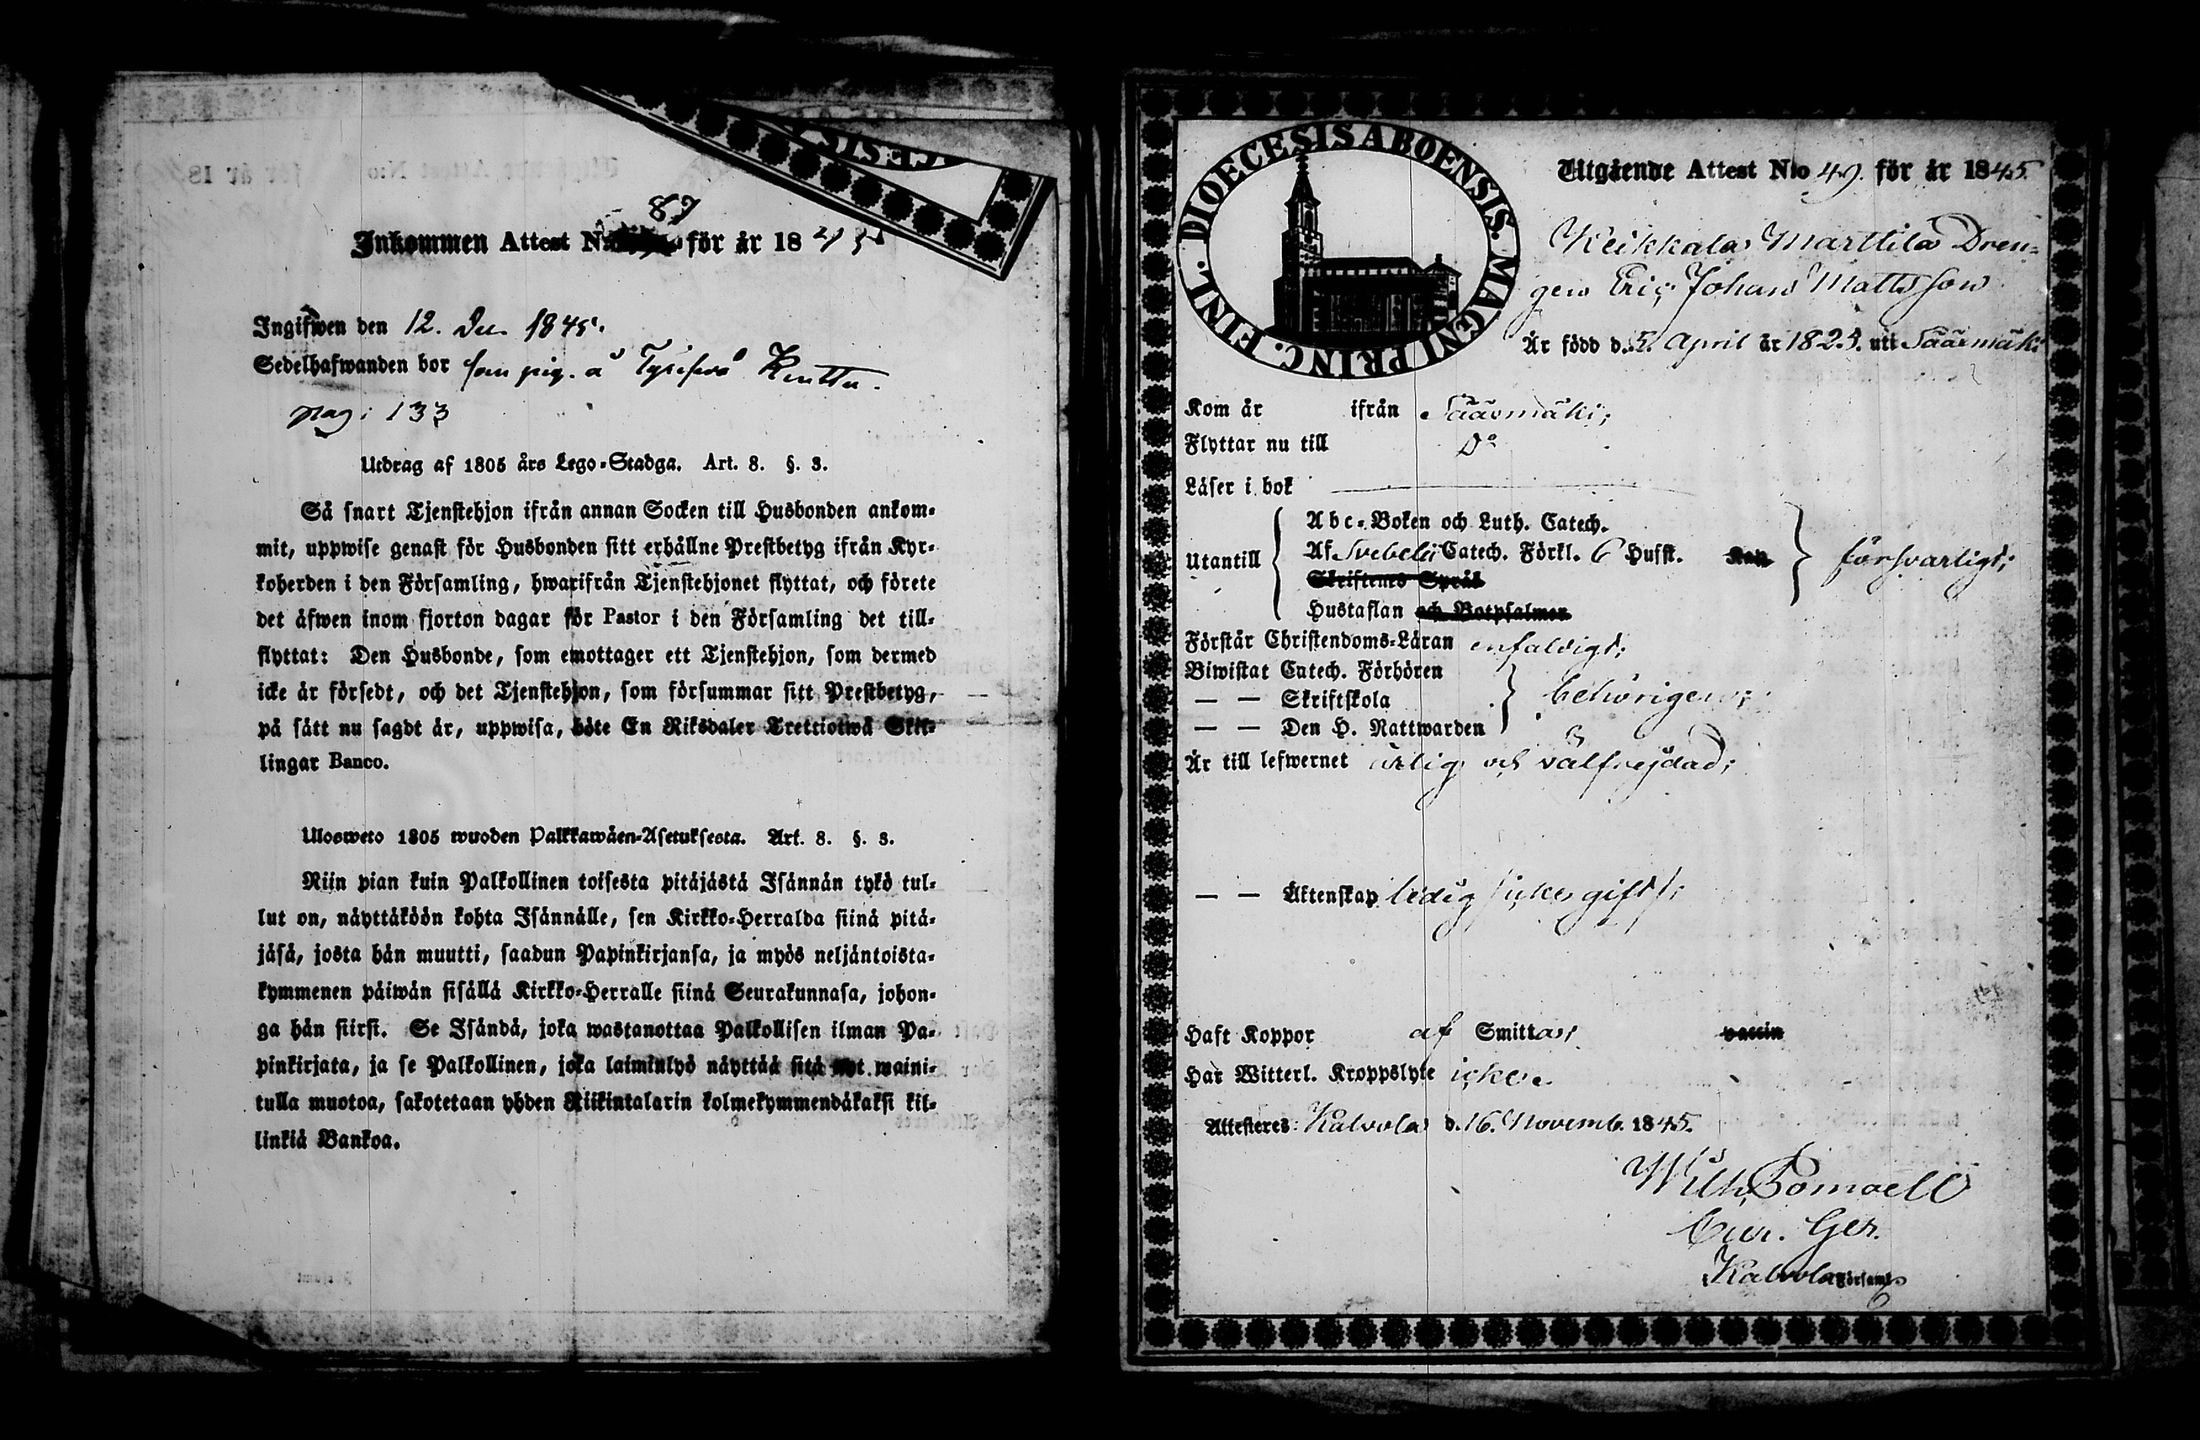 89
Inkommen Attest N:o för år 1845
Ingifwen den 12. Dec. 1845.
Sedelhafwanden bor som pig. å
pag: 133
Utdrag af 1805 års Lego-Stadga. Art. 8. §. 3.
Så snart Tjenstehjon ifrån annan Socken till Husbonden ankom-
mit, uppwise genast för Husbonden sitt erhållne Prestbetyg ifrån Kyr-
koherden i den Församling, hwarifrån Tjenstehjonet flyttat, och förete
det äfwen inom fjorton dagar för Pastor i den Församling det till-
flyttat: Den Husbonde, som emottager ett Tjenstehjon, som dermed
icke är försedt, och det Tjenstehjon, som försummar sitt Prestbetyg,
på sätt nu sagdt är, uppwisa, böte En Riksdaler Trettiotwå Skil-
lingar Banco.
Ulosweto 1805 wuoden Palkkawäen-Asetuksesta. Art. 8. §. 3.
Niin pian kuin Palkollinen toisesta pitäjästä Isännän tykö tul-
lut on, näyttäköön kohta Isännälle, sen Kirkko-Herralda siinä pitä-
jäsä, josta hän muutti, saadun Papinkirjansa, ja myös neljäntoista-
kymmenen päiwän sisällä Kirkko-Herralle siinä Seurakunnasa, johon-
ga hän siirsi. Se Isändä, joka wastanottaa Palkollisen ilman Pa-
pinkirjata, ja se Palkollinen, joka laiminlyö näyttää sitä nyt maini-
tulla muotoa, sakotetaan yhden Riikintalarin kolmekymmendäkaksi kil-
linkiä Bankoa.
DIOECESIS ABOENSIS. MAGNI PRINC. FINL.
Utgående Attest N:o 49. för år 1845.
Keikkala Marttila Dren-
gen Eric Johan Mattsson
Är född d. 5. April år 1823. uti Sääxmäki
Kom år ifrån Sääxmäki;
Flyttar nu till Do
Läser i bok
Utantill
Abc-Boken och Luth. Catech.
Af Svebelii Catech. Förkl. 6 Hufst. Kan försvarligt;
Skriftenes Språk
Hustaflan och Botpsalmer
Förstår Christendoms-Läran enfaldigt;
Biwistat Catech. Förhören
— — Skriftskola behörigen;
— — Den H. Nattwarden
Är till lefwernet ärlig och välfrejdad;
— — Äktenskap ledig icke gift;
Haft Koppor af Smittan; vaccin
Har Witterl. Kroppslyte icke.
Attesteras: Kalvola d. 16. Novemb. 1845.
Wilh. Pomoell
Cur. Ger.
Kalvola Församl.